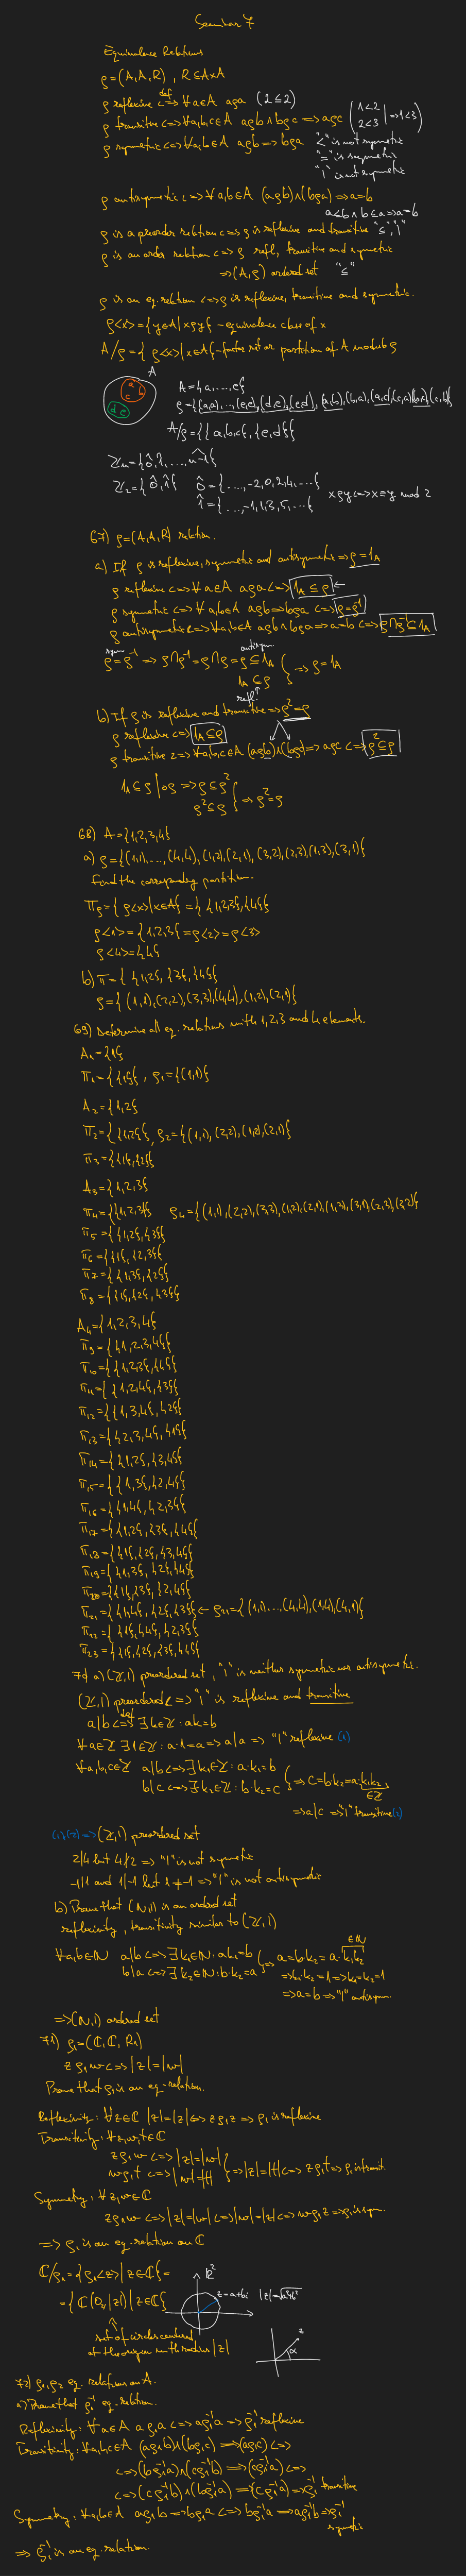 Seminar 7
Equivalence Relations
ρ=(A,A,R) , R⊆A×A
ρ reflexive <=>def ∀a∈A aρa (2≤2)
ρ transitive <=>∀a,b,c∈A aρb∧bρc=>aρc (1<2 2<3 | =>1<3)
ρ symmetric <=>∀a,b∈A aρb=>bρa "<" is not symmetric
"=" is symmetric
"|" is not symmetric
ρ antisymmetric <=>∀a,b∈A (aρb)∧(bρa)=>a=b
a≤b∧b≤a=>a=b
ρ is a preorder relation <=>ρ is reflexive and transitive "≤","|"
ρ is an order relation <=>ρ refl, transitive and symetric
=>(A,ρ) ordered set "≤"
ρ is an eq. relation <=>ρ is reflexive, transitive and symmetric.
ρ<x>={y∈A|xρy} - equivalence class of x
A/ρ={ρ<x>|x∈A} - factor set or partition of A modulo ρ
A
a b c
d e
A={a,...,e}
ρ={(a,a),...,(e,e),(d,e),(e,d),(a,b),(b,a),(a,c),(c,a),(b,c),(c,b)}
A/ρ={{a,b,c},{e,d}}
ℤn={0̂,1̂,...,n-1̂}
ℤ2={0̂,1̂} 0̂={...,-2,0,2,4,...}
1̂={...,-1,1,3,5,...} xρy<=>x≡y mod 2
67) ρ=(A,A,R) relation.
a) If ρ is reflexive, symmetric and antisymmetric=>ρ=1A
ρ reflexive <=>∀a∈A aρa<=>1A⊆ρ←
ρ symmetric <=>∀a,b∈A aρb=>bρa<=>ρ=ρ⁻¹
ρ antisymmetric<=>∀a,b∈A aρb∧bρa=>a=b<=>ρ∩ρ⁻¹⊆1A
sym antisym
ρ=ρ⁻¹=>ρ∩ρ⁻¹=ρ∩ρ=ρ⊆1A } =>ρ=1A
1A⊆ρ
refl.
b) If ρ is reflexive and transitive=>ρ²=ρ
ρ reflexive <=>1A⊆ρ
ρ transitive <=>∀a,b,c∈A (aρb)∧(bρc)=>aρc<=>ρ²⊆ρ
1A⊆ρ|∘ρ=>ρ⊆ρ² } =>ρ²=ρ
ρ²⊆ρ
68) A={1,2,3,4}
a) ρ={(1,1),...,(4,4),(1,2),(2,1),(3,2),(2,3),(1,3),(3,1)}
Find the corresponding partition.
Πρ={ρ<x>|x∈A}={{1,2,3},{4}}
ρ<1>={1,2,3}=ρ<2>=ρ<3>
ρ<4>={4}
b) Π={{1,2},{3},{4}}
ρ={(1,1),(2,2),(3,3),(4,4),(1,2),(2,1)}
69) Determine all eq. relations with 1,2,3 and 4 elements.
A1={1}
Π1={{1}} , ρ1={(1,1)}
A2={1,2}
Π2={{1,2}}, ρ2={(1,1),(2,2),(1,2),(2,1)}
Π3={{1},{2}}
A3={1,2,3}
Π4={{1,2,3}} ρ4={(1,1),(2,2),(3,3),(1,2),(2,1),(1,3),(3,1),(2,3),(3,2)}
Π5={{1,2},{3}}
Π6={{1},{2,3}}
Π7={{1,3},{2}}
Π8={{1},{2},{3}}
A4={1,2,3,4}
Π9={{1,2,3,4}}
Π10={{1,2,3},{4}}
Π11={{1,2,4},{3}}
Π12={{1,3,4},{2}}
Π13={{2,3,4},{1}}
Π14={{1,2},{3,4}}
Π15={{1,3},{2,4}}
Π16={{1,4},{2,3}}
Π17={{1,2},{3},{4}}
Π18={{1},{2},{3,4}}
Π19={{1,3},{2},{4}}
Π20={{1},{3},{2,4}}
Π21={{1,4},{2},{3}}← ρ21={(1,1),...,(4,4),(1,4),(4,1)}
Π22={{1},{4},{2,3}}
Π23={{1},{2},{3},{4}}
70) a) (ℤ,|) preordered set, "|" is neither symmetric nor antisymetric.
(ℤ,|) preordered<=>"|" is reflexive and transitive
a|b <=>def ∃k∈ℤ: ak=b
∀a∈ℤ ∃1∈ℤ: a·1=a=>a|a=>"|" reflexive (1)
∀a,b,c∈ℤ a|b<=>∃k1∈ℤ: a·k1=b
b|c<=>∃k2∈ℤ: b·k2=c } =>c=b·k2=a·k1k2
∈ℤ
=>a|c=>"|" transitive (2)
(1),(2)=>(ℤ,|) preordered set
2|4 but 4∤2=>"|" is not symmetric
-1|1 and 1|-1 but 1≠-1=>"|" is not antisymmetric
b) Prove that (ℕ,|) is an ordered set
reflexivity, transitivity similar to (ℤ,|)
∈ℕ
∀a,b∈ℕ a|b<=>∃k1∈ℕ: ak1=b } => a=b·k2=a·k1k2
b|a<=>∃k2∈ℕ: b·k2=a =>k1·k2=1=>k1=k2=1
=>a=b=>"|" antisym.
=>(ℕ,|) ordered set
71) ρ1=(ℂ,ℂ,R1)
zρ1w<=>|z|=|w|
Prove that ρ1 is an eq. relation.
Reflexivity: ∀z∈ℂ |z|=|z|<=>zρ1z=>ρ1 is reflexive
Transitivity: ∀z,w,t∈ℂ
zρ1w<=>|z|=|w|
wρ1t<=>|w|=|t| } =>|z|=|t|<=>zρ1t=>ρ1 is transit.
Symmetry: ∀z,w∈ℂ
zρ1w<=>|z|=|w|<=>|w|=|z|<=>wρ1z=>ρ1 is sym.
=>ρ1 is an eq. relation on ℂ
ℂ/ρ1={ρ1<z>|z∈ℂ}=
={C(O,|z|)|z∈ℂ}
set of circles centered
at the origin with radius |z|
ℝ²
z=a+bi |z|=√a²+b²
z
α
72) ρ1,ρ2 eq. relations on A.
a) Prove that ρ1⁻¹ eq. relation.
Reflexivity: ∀a∈A aρ1a<=>aρ1⁻¹a=>ρ1⁻¹ reflexive
Transitivity: ∀a,b,c∈A (aρ1b)∧(bρ1c)=>(aρ1c)<=>
<=>(bρ1⁻¹a)∧(cρ1⁻¹b)=>(cρ1⁻¹a)<=>
<=>(cρ1⁻¹b)∧(bρ1⁻¹a)=>(cρ1⁻¹a)=>ρ1⁻¹ transitive
Symmetry: ∀a,b∈A aρ1b=>bρ1a<=>bρ1⁻¹a=>aρ1⁻¹b=>ρ1⁻¹
symetric
=>ρ1⁻¹ is an eq. relation.